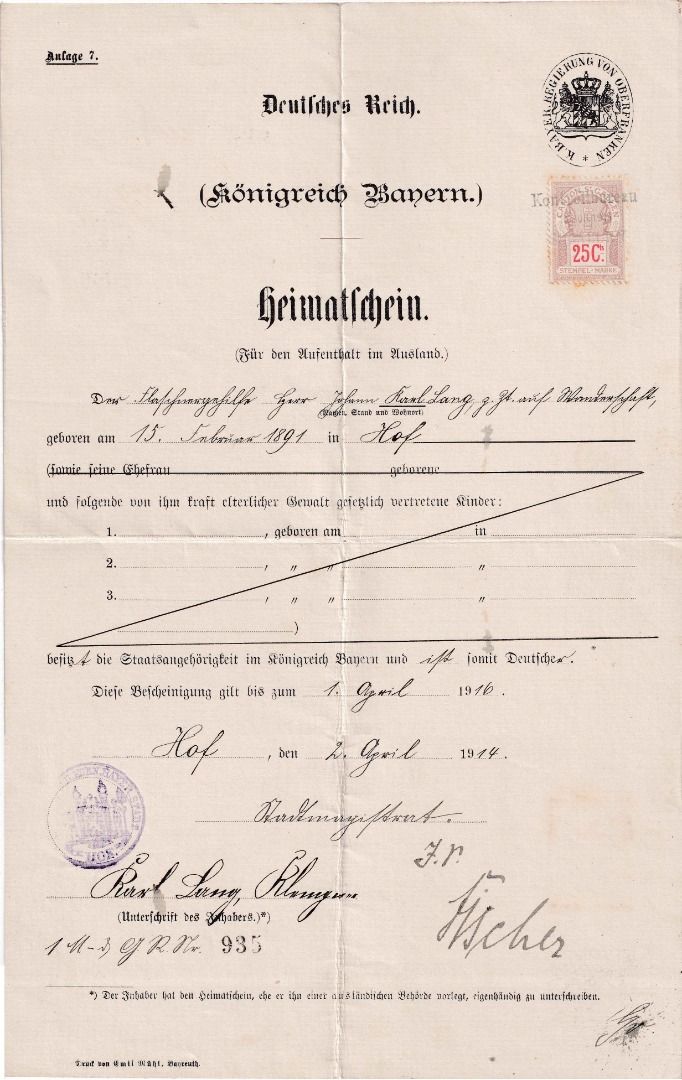 Anlage 7.
K. BAYER. REGIERUNG VON OBERFRANKEN *
Deutsches Reich.
(Königreich Bayern.)
Kontrollbureau
25 Cts
STEMPEL-MARKE
Heimatschein.
(Für den Aufenthalt im Ausland.)
Der Flaschnergehilfe Herr Johann Karl Lang, z. Zt. auf Wanderschaft,
(Namen, Stand und Wohnort)
geboren am 15. Februar 1891 in Hof
(sowie seine Ehefrau geborene
und folgende von ihm kraft elterlicher Gewalt gesetzlich vertretene Kinder:
1. , geboren am in
2. , " " "
3. , " " "
)
besitzt die Staatsangehörigkeit im Königreich Bayern und ist somit Deutscher.
Diese Bescheinigung gilt bis zum 1. April 1916.
Hof, den 2. April 1914.
Stadtmagistrat.
HOF.
J. V.
Karl Lang, Klempner
Fischer
(Unterschrift des Inhabers.)*)
1 M - G R. Nr. 935
*) Der Inhaber hat den Heimatschein, ehe er ihn einer ausländischen Behörde vorlegt, eigenhändig zu unterschreiben.
Druck von Emil Mühl, Bayreuth.